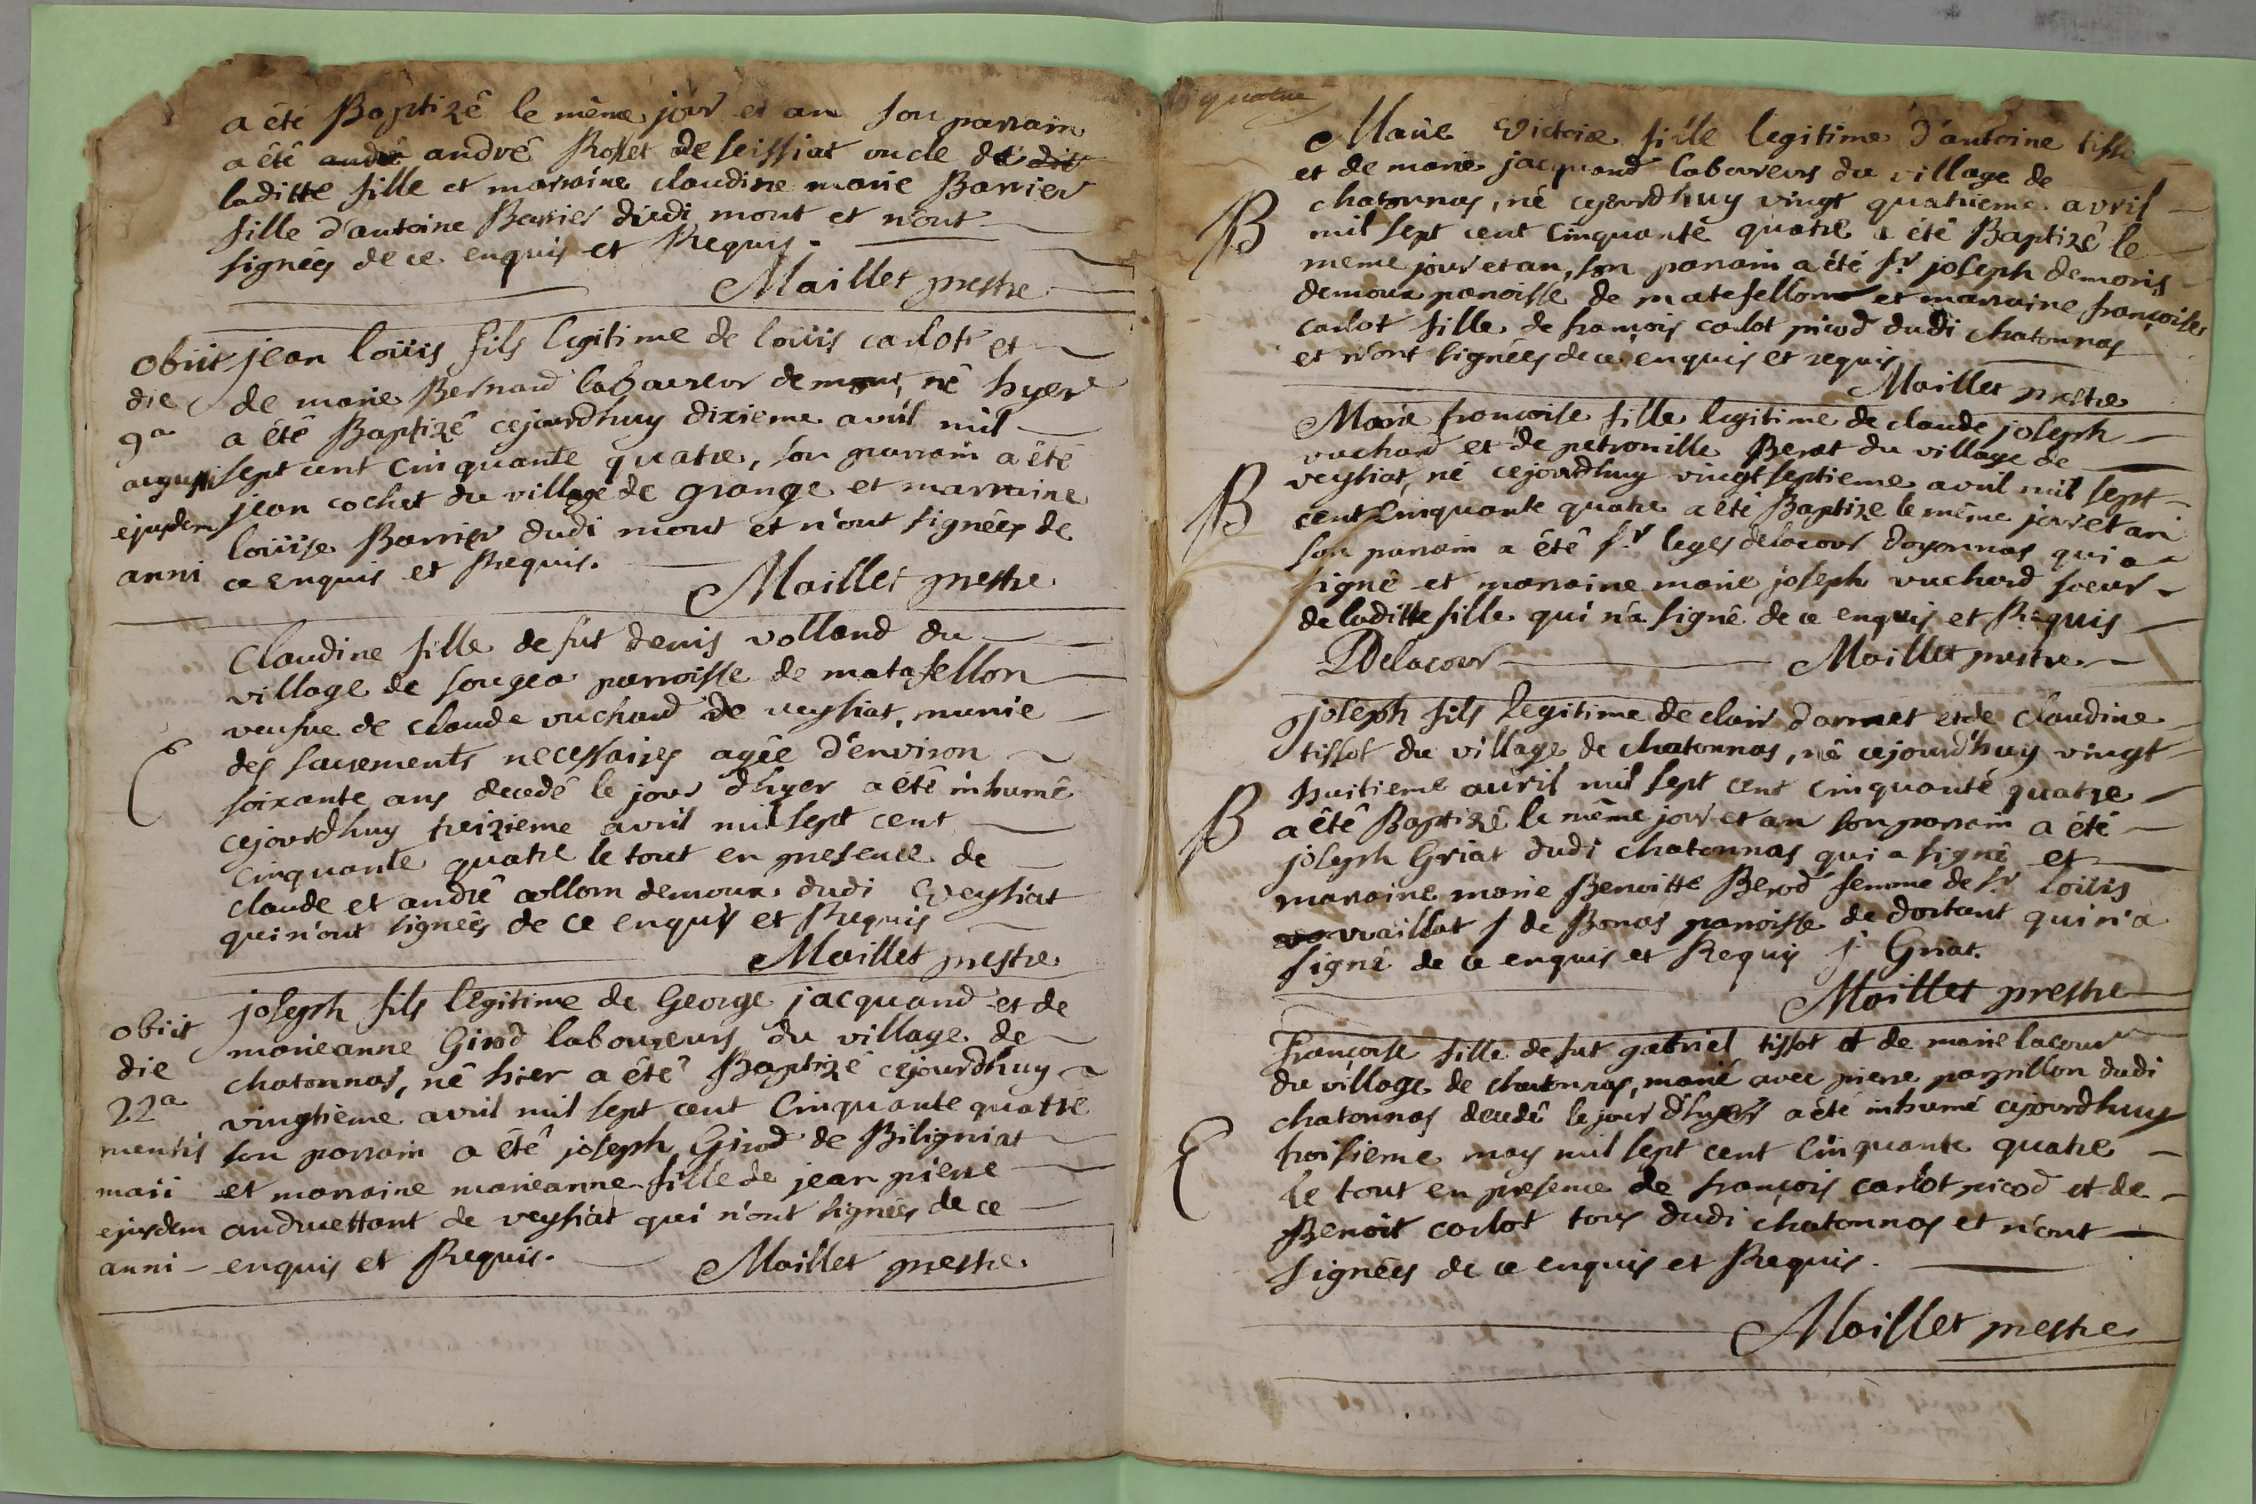 a été Baptizê le même jour et an son parrain
a été andrê andrê Rosset de seissiat oncle de dit
laditte fille et marraine claudine marie Barrier
fille d'antoine Barrier dudi mont et n'ont
signées de ce enquis et Requis.
Maillet prestre
jean loüis fils legitime de loüis carlot et
de marie Bernard laboureur de mont, né hyer
a été Baptizê cejourdhuy dixieme avril mil
sept cent cinquante quatre, son parrain a été
jean cochet du village de grange et marraine
loüise Barrier dudi mont et n'ont signées de
ce enquis et Requis.
Maillet prestre
obiit
die
9a
augusti
ejusdem
anni
Claudine fille de fut denis volland du
village de songea parroisse de matafellon
veufve de claude vuchard de veysiat, munie
des sacrements necessaires agée d'environ
soixante ans decedê le jour d'hyer a été inhumê
cejourdhuy treizieme avril mil sept cent
cinquante quatre le tout en presence de
claude et andrê collom demoux dudi Veysiat
qui n'ont signées de ce enquis et Requis
Maillet prestre
E
joseph fils legitime de George jacquand et de
marieanne Girod laboureurs du village de
chatonnas, nê hier a été Baptizê cejourdhuy
vingtieme avril mil sept cent Cinquante quatre
son parrain a été joseph Girod de Biligniat
et marraine marieanne fille de jean pierre
andruettant de veysiat qui n'ont signées de ce
enquis et Requis.
Maillet prestre
obiit
die
22a
mensis
maii
ejusdem
anni
quatre
Marie Victoire fille legitime d'antoine tisso
et de marie jacquand laboureurs du village de
chatonnas, né cejourdhuy vingt quatrieme avril
mil sept cent cinquante quatre a été Baptizê le
meme jour et an, son parrain a été sr joseph demoris
demoux paroisse de matefellon et marraine françoise
carlot fille de françois carlot picod dudi chatonnas
et n'ont signées de ce enquis et requis
Maillet prestre
B
Marie françoise fille legitime de claude joseph
vuchard et de petronille Berot du village de
veysiat, né cejourdhuy vingtseptieme avril mil sept
cent Cinquante quatre a été Baptize le même jour et an
son parrain a été sr leger delacour d'oyonnas qui a
signê et marraine marie joseph vuchard soeur
de laditte fille qui n'a signê de ce enquis et Requis
Delacour Maillet prestre
B
joseph fils legitime de clair darmet et de Claudine
tissot du village de chatonnas, né cejourd'huy vingt
huitieme avril mil sept cent cinquante quatre
a été Baptizê le même jour et an son parrain a été
joseph Griat dudi chatonnas qui a signê et
marraine marie Benoitte Berod femme de sr loüis
vuaillat s de Bonas paroisse de dortant qui n'a
signé de ce enquis et Requis j. Griat.
Maillet prestre
B
Françoise fille de fut gabriel tissot et de marie lacour
du village de chatonnas, marié avec pierre papillon dudi
chatonnas decedê le jour d'hyer a été inhumé cejourdhuy
troisieme may mil sept cent Cinquante quatre
le tout en presence de françois carlot picod et de
Benoit carlot tous dudi chatonnas et n'ont
signées de ce enquis et Requis.
Maillet prestre
E